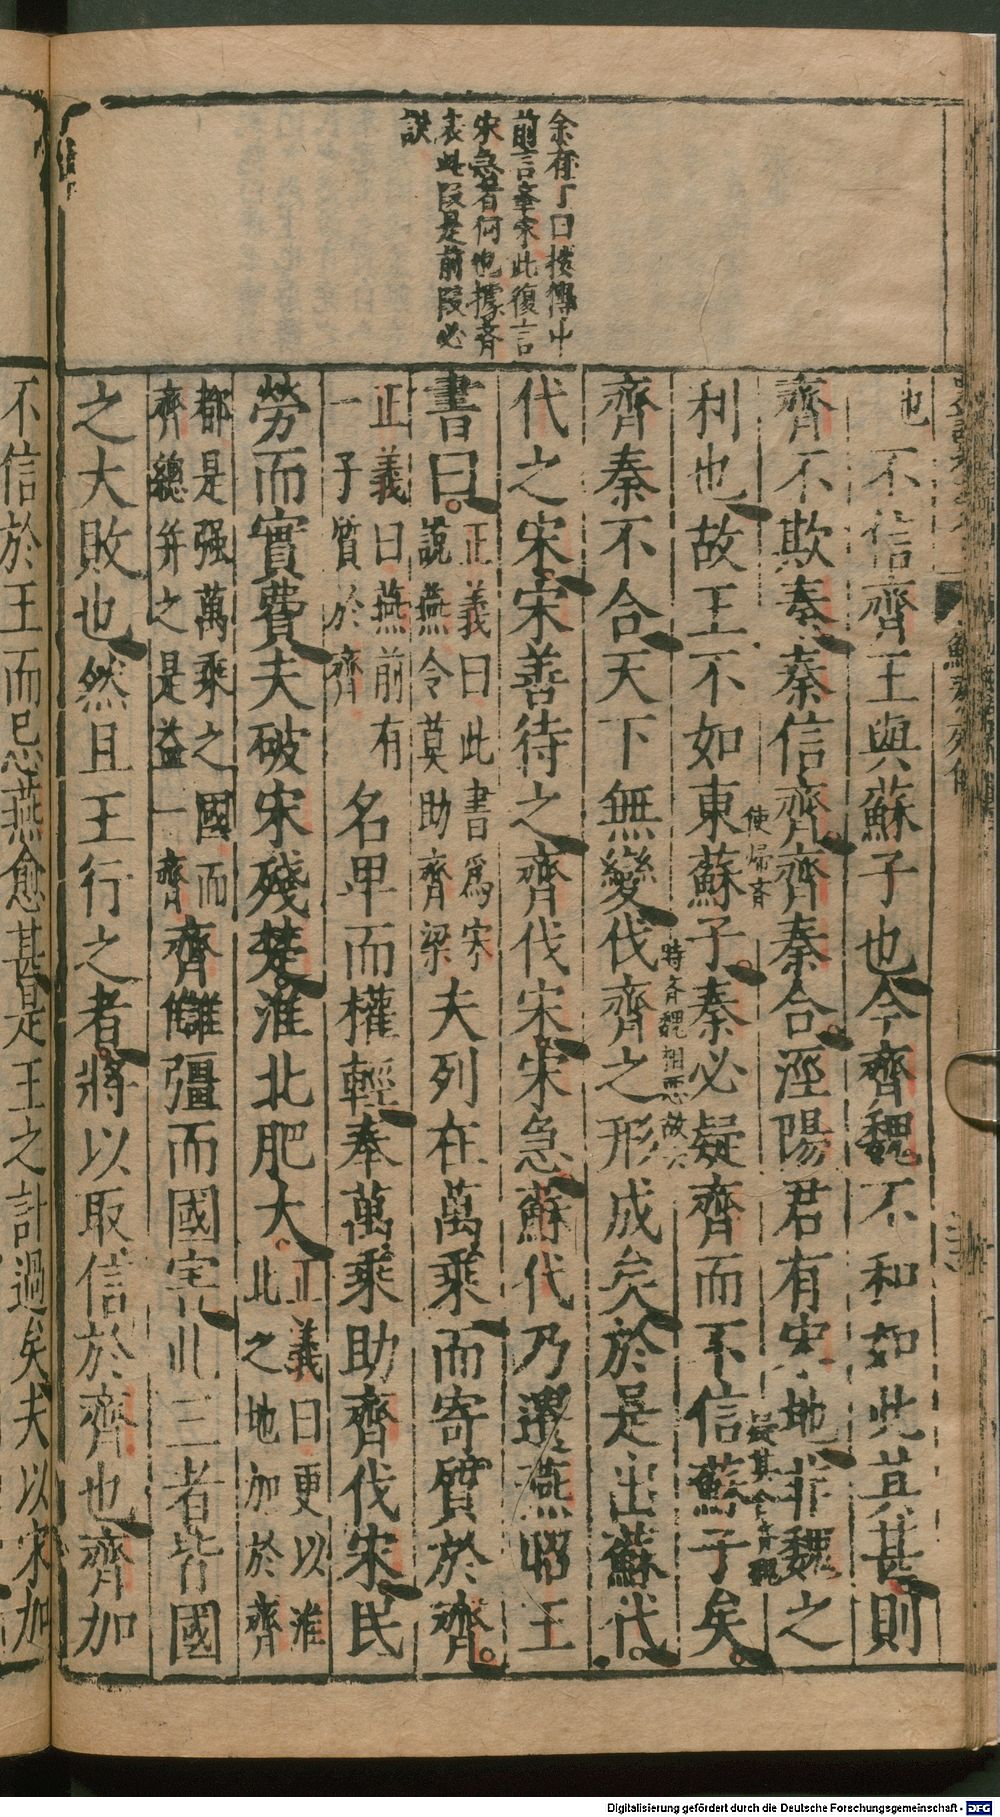 余有丁曰按傳中
前言奉宋此復言
宋急者何也據吝
表此段是前段必
誤
也不信齊王與蘇子也今齊魏不和如此其甚則
齊不欺秦秦信齊齊秦合涇陽君有宋地非魏之
利也故王不如東蘇子秦必疑齊而不信蘇子矣
使歸齊
疑其合齊魏
齊秦不合天下無變伐齊之形成矣於是出蘇代
代之宋宋善待之齊伐宋宋急蘇代乃遺燕昭王
書曰正義曰此書為宋說燕令莫助齊梁夫列在萬乘而寄質於齊
正義曰燕前有一子質於齊名卑而權輕奉萬乘助齊伐宋民
勞而實費夫破宋殘楚淮北肥大正義曰更以淮北之地加於齊
都是強萬乘之國而齊總并之是益一齊齊讎彊而國害此三者皆國
之大敗也然且王行之者將以取信於齊也齊加
不信於王而忌燕愈甚是王之計過矣夫以宋加
蘇秦列傳
Digitalisierung gefördert durch die Deutsche Forschungsgemeinschaft - DFG